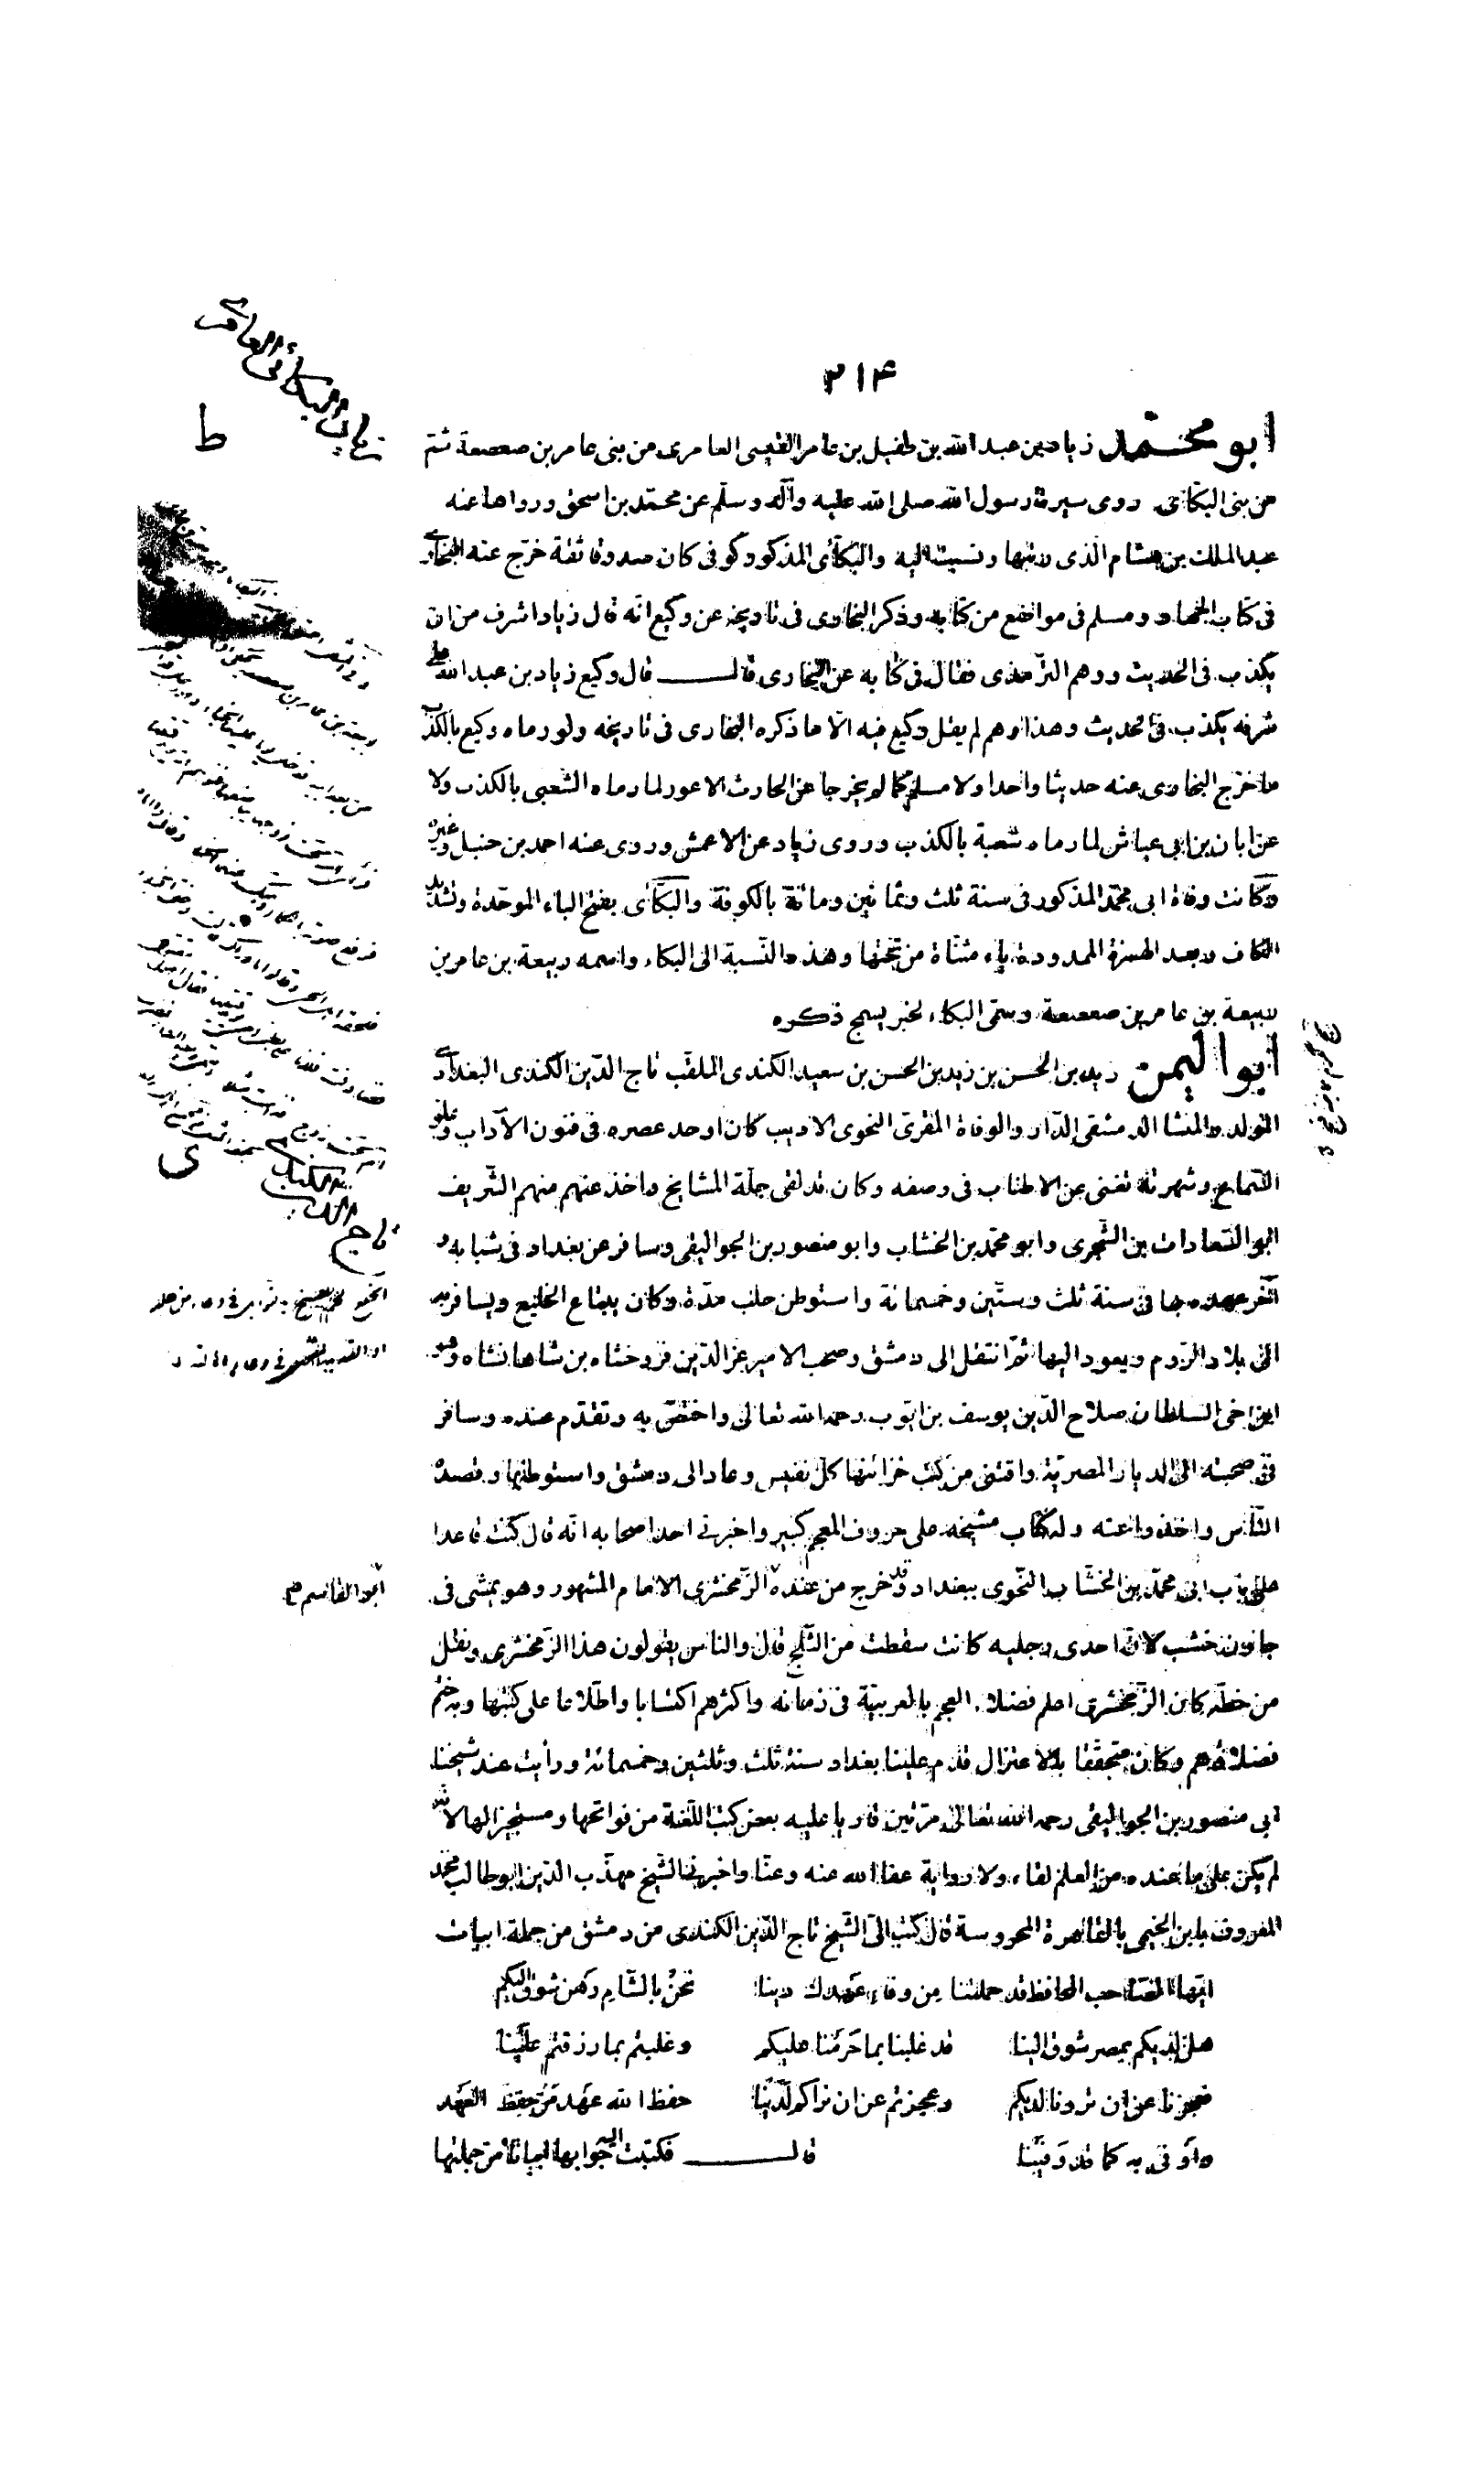 ٢١۴
زياد البكائى العامرى
ط
ابو محمّد زياد بن عبد الله بن طفيل بن عامر القيسى العامرى من بنى عامر بن صعصعة ثم
من بنى البكّائى روى سيرة رسول الله صلى الله عليه وآله وسلّم عن محمّد بن اسحق ورواها عنه
عبد الملك بن هشام الّذى رتبها ونسبت اليه والبكّائى المذكور كوفى كان صدوقا ثقة خرّج عنه البخارى
فى كتاب الجهاد ومسلم فى مواضع من كتابه وذكر البخارى فى تاريخه عن وكيع انّه قال زياد اشرف من ان
يكذب فى الحديث ووهم الترمذى فقال فى كتابه عن البخارى قالــــ قال وكيع زياد بن عبد الله على
شرفه يكذب فى الحديث وهذا وهم لم يقل وكيع فيه الّا ما ذكره البخارى فى تاريخه ولو رماه وكيع بالكذب
ما خرّج البخارى عنه حديثا واحدا ولا مسلم كما لم يخرجا عن الحارث الاعور لما رماه الشعبى بالكذب ولا
عن ابان بن ابى عياش لما رماه شعبة بالكذب وروى زياد عن الاعمش وروى عنه احمد بن حنبل وغيره
وكانت وفاة ابى محمّد المذكور فى سنة ثلث وثمانين ومائة بالكوفة والبكّائى بفتح الباء الموحّدة وتشديد
الكاف وبعد الهمزة الممدودة ياء مثنّاة من تحتها وهذه النّسبة الى البكاء واسمه ربيعة بن عامر بن
ربيعة بن عامر بن صعصعة وسمّى البكاء لخبر يسمج ذكره
ابو اليمن زيد بن الحسن بن زيد بن الحسن بن سعيد الكندى الملقّب تاج الدّين الكندى البغدادى
المولد والمنشا الدمشقى الدّار والوفاة المقرى النحوى الاديب كان اوحد عصره فى فنون الآداب وعلو
السّماع وشهرته تغنى عن الاطناب فى وصفه وكان قد لقى جلّة المشايخ واخذ عنهم منهم الشّريف
ابو السّعادات بن الشّجرى وابو محمّد بن الخشّاب وابو منصور بن الجواليقى وسافر عن بغداد فى شبابه و
آخر عهده بها فى سنة ثلث وستّين وخمسمائة واستوطن حلب مدّة وكان يبتاع الخليع ويسافر به
الى بلاد الرّوم ويعود اليها ثمّ انتقل الى دمشق وصحب الامير عزّ الدّين فروخشاه بن شاهانشاه وهو
ابن اخى السلطان صلاح الدّين يوسف بن ايّوب رحمه الله تعالى واختصّ به وتقدّم عنده وسافر
فى صحبته الى الديار المصريّة واقتنى من كتب خزائنها كلّ نفيس وعاد الى دمشق واستوطنها وقصده
النّاس واخذوا عنه وله كتاب مشيخة على حروف المعجم كبير واخبرنى احد اصحابه انّه قال كنت قاعدا
على باب ابى محمّد بن الخشّاب النّحوى ببغداد وقد خرج من عنده الزّمخشرى الامام المشهور وهو يمشى فى
ابو القاسم
جاون خشب لانّ احدى رجليه كانت سقطت من الثّلج قال والناس يقولون هذا الزّمخشرى ونقل
من خطّه كان الزّمخشرى اعلم فضلاء العجم بالعربيّة فى زمانه واكثرهم اكتسابا واطّلاعا على كتبها وبه ختم
فضلاؤهم وكان متحقّقا بالاعتزال قدم علينا بغداد سنة ثلث وثلثين وخمسمائة ورأيت عند شيخنا
ابى منصور بن الجواليقى رحمه الله تعالى مرّتين قاريا عليه بعض كتب اللّغة من فواتحها ومستجيزا لها لانّه
لم يكن على ما عنده من العلم لقاء ولا رواية عفا الله عنه وعنّا واخبرنى الشّيخ مهذّب الدّين ابو طالب محمّد
المعروف بابن الخيمى بالقاهرة المحروسة قال كتب الىّ الشّيخ تاج الدّين الكندى من دمشق من جملة ابيات
ايّها الصّاحب المحافظ قد حملتنا مِن وفاء عَهدك دينا نحنُ بالشّام رهن شوق اليكم
هل لديكم بمصر شوق الينا قد غلبنا بما حَرَمنا عليكم وغلبتم بما رزقتم علينا
فعجزنا عن ان ترونا لديكم وعجزتم عن ان نراكم لَدَينا حفظ الله عَهد مَن حفظ العَهد
واَوفى به كما قد وَفَينا قالــــ فكتبت اليه جوابها ابياتا من جملتها
ى
تاج الدين الكندى